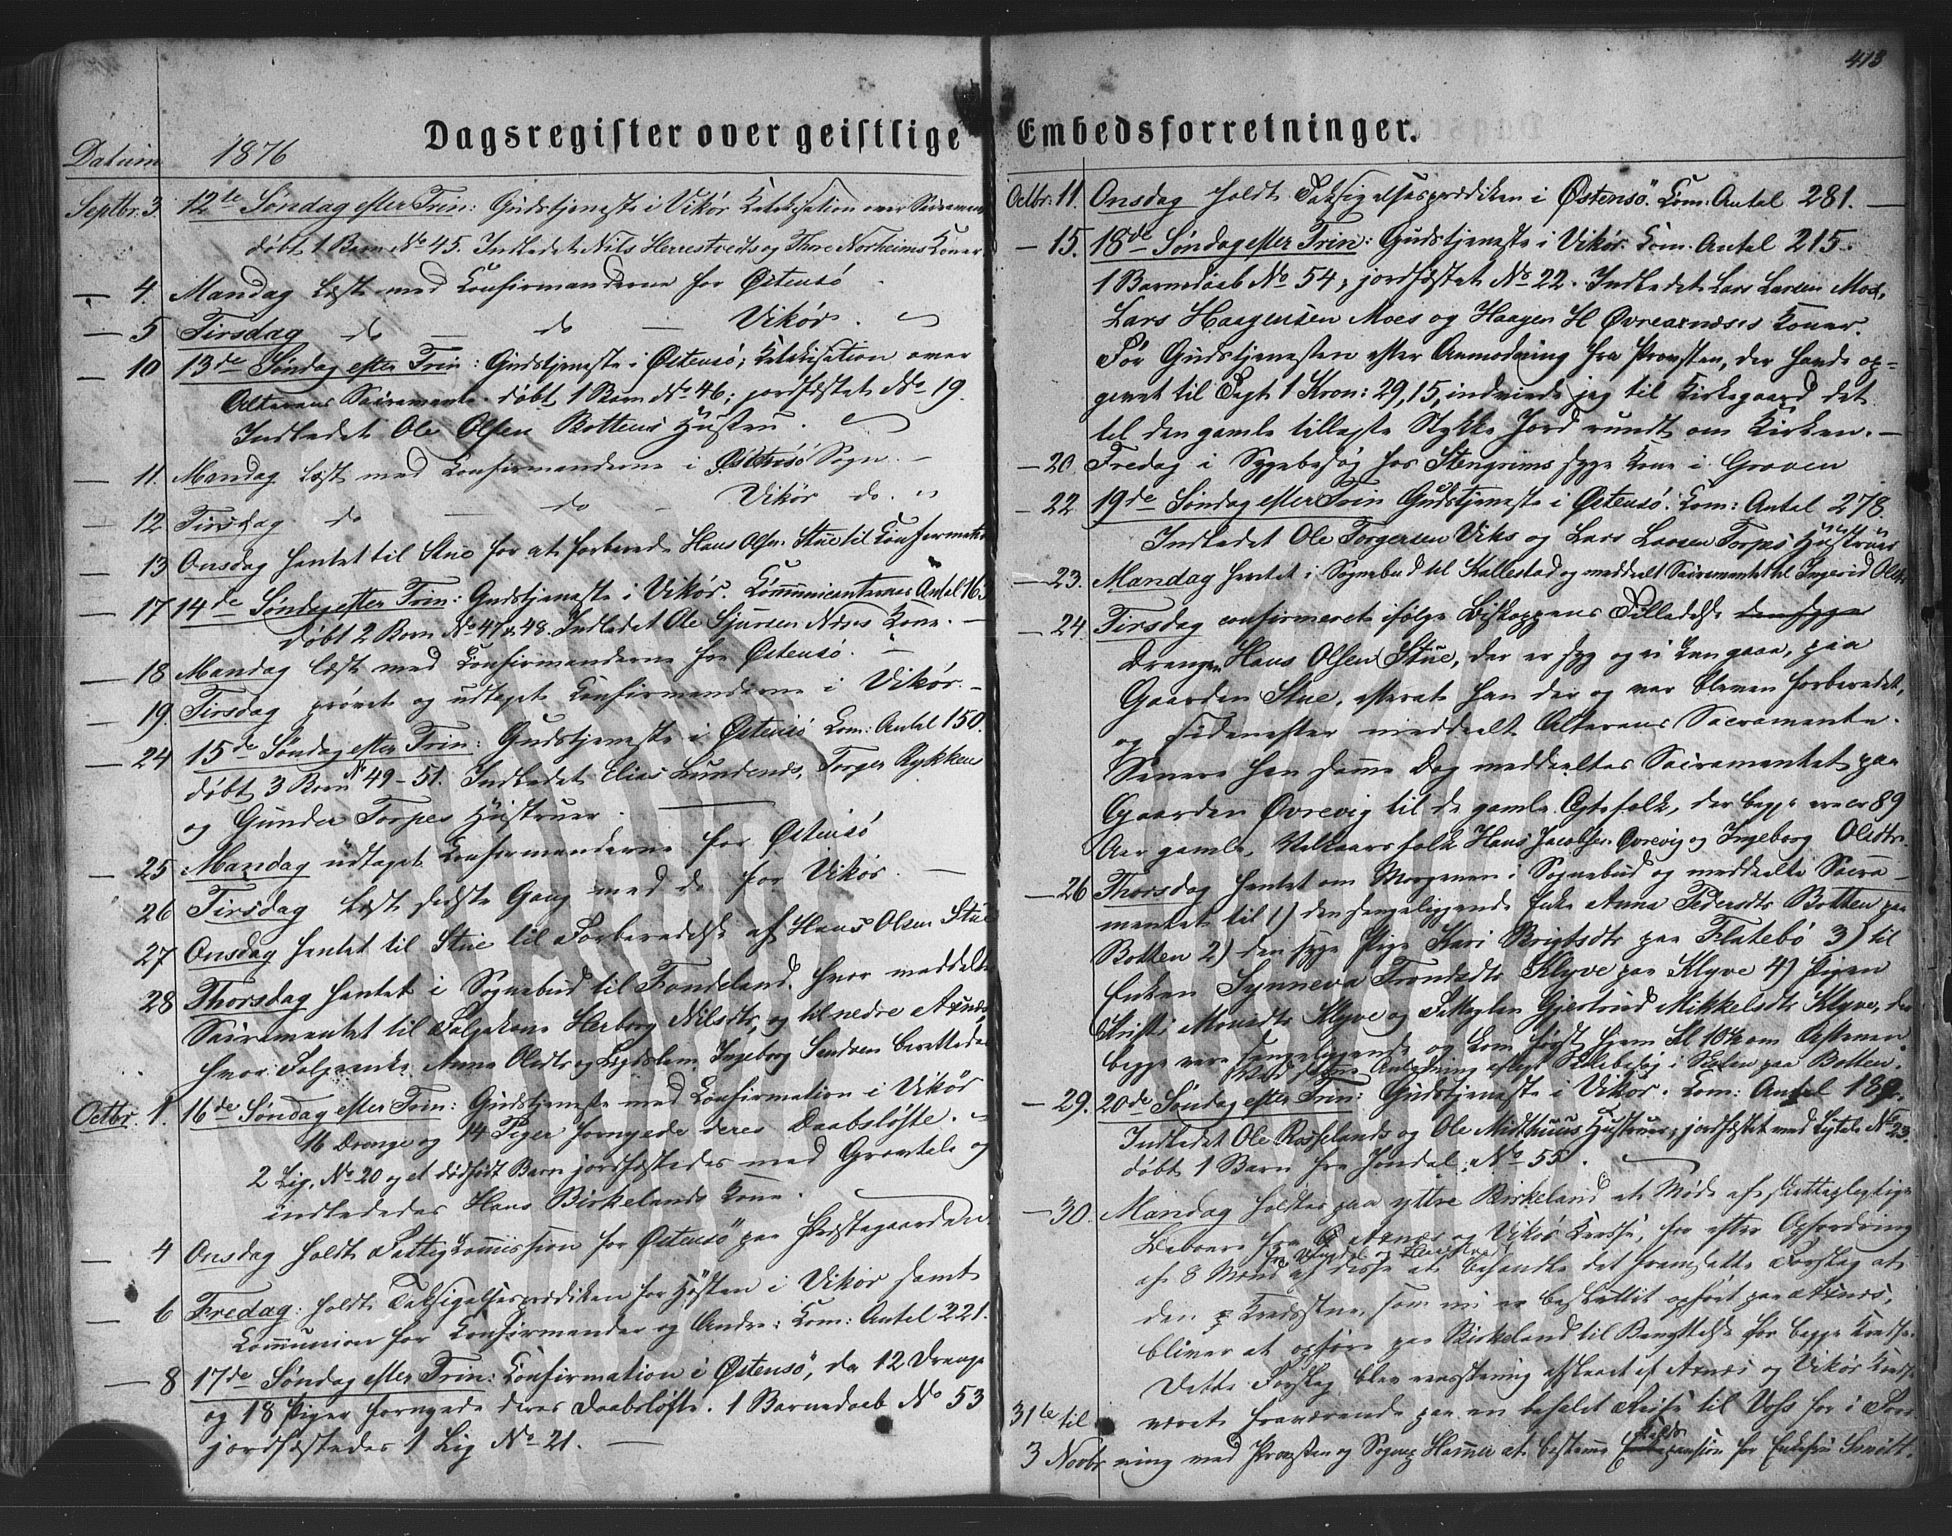 413
Dagsregister over geistlige Embedsforretninger.
Datum 1876
Septbr. 3. 12te Søndag efter Trin: Gudstjeneste i Vikør Katekisation over Sacram
døbt 1 Barn No 45. Indledet Nils Herrestveits og Thore Norheims Koner
— 4. Mandag læst med Confirmanderne for Østensø
— 5 Tirsdag do — do — Vikør.
— 10 13de Søndag efter Trin: Gudstjeneste i Østensø; Katekisation over
Alterens Sacramente. døbt 1 Barn No 46; jordfæstet No 19.
Indledet Ole Olsen Bottens Hustru.
— 11. Mandag læst med Confirmanderne i Østensø Sogn. —
— 12 Tirsdag do — do — Vikør do. "
— 13 Onsdag hentet til Stue for at forberede Hans Olsen Stue til Confirmati
— 17 14de Søndag efter Trin: Gudstjeneste i Vikør. Communicanternes Antal 163
døbt 2 Børn No 47 & 48. Indledet Ole Sjursen Næs Kone. —
— 18 Mandag læst med Confirmanderne for Østensø. —
— 19. Tirsdag prøvet og udtaget Confirmanderne i Vikør. —
— 24 15de Søndag efter Trin: Gudstjeneste i Østensø Kom: Antal 150.
døbt 3 Børn No 49-51. Indledet Elias Lundenes, Torger Rykkens
og Gunder Torpes Hustruer.
— 25 Mandag udtaget Confirmanderne for Østensø
26 Tirsdag læst sidste Gang med do for Vikør. —
27 Onsdag hentet til Stue til Forberedelse af Hans Olsen Stue
28 Thorsdag hentet i Sognebud til Fondeland, hvor meddelte
Sacramentet til Herborg Nilsdtr, og til nedre Axnæs
hvor Anna Olsdtr og Ingeborg Sandven berettede
Octbr. 1. 16de Søndag efter Trin: Gudstjeneste med Confirmation i Vikør
16 Drenge og 14 Piger fornyede deres Daabsløfte. —
2 Lig, No 20 og et dødfødt Barn jordfæstedes med Gravtale og
indlededes Hans Birkelands Kone.
— 4 Onsdag holdt Fattigkommission for Østensø paa Præstegaarden.
— 6 Fredag: holdt Taksigelsesprædiken for Høsten i Vikør samt
Communion for Confirmander og Andre: Kom: Antal 221.
— 8 17de Søndag efter Trin: Confirmation i Østensø, da 12 Drenge
og 18 Piger fornyede deres Daabsløfte. 1 Barnedaab No 53
jordfæstedes 1 Lig No 21. —
Octbr: 11. Onsdag holdt Taksigelsesprædiken i Østensø. Kom: Antal 281. —
— 15. 18de Søndag efter Trin: Gudstjeneste i Vikør. Kom. Antal 215.
1 Barnedaab No 54, jordfæstet No 22. Indledet Lars Larsen Moe,
Lars Haagensen Moes og Haagen H Øvreaxnæses Koner.
Før Gudstjenesten efter Anmodning fra Provsten, der havde op-
gevet til Text 1 Kron: 29,15, indviede jeg til Kirkegaard det
til den gamle tillagte Stykke Jord rundt om Kirken. —
— 20. Fredag i Sygebesøg hos Stengrims syge Kone i Graven
— 22. 19de Søndag efter Trin Gudstjeneste i Østensø. Kom: Antal 278.
Indledet Ole Torgersen Viks og Lars Larsen Torpes Hustruer
— 23. Mandag hentet i Sognebud til Kallestad og meddelt Sacramentet til Ingerid Olsdtr
— 24 Tirsdag confirmeret ifølge Biskoppens Tilladelse den syge
Drengen Hans Olsen Stue, der er syg og ei kan gaae, paa
Gaarden Stue, efterat han der og var bleven forberedet,
og sidenefter meddelt Alterens Sacramente.
Senere hen samme Dag meddeeltes Sacramentet paa
Gaarden Øvrevig til de gamle Egtefolk, der begge ere 89
Aar gamle, Hans Jacobsen Øvrevig og Ingeborg Olsdtr.
— 26 Thorsdag hentet om Morgenen i Sognebud og meddeelte Sacra-
mentet til 1) den sengeliggende Enke Anna Pedersdtr Botten paa
Botten 2) den syge Pige Kari Brigtsdtr paa Flatebø 3) til
Enken Synneva Trondsdtr Klyve paa Klyve 4) Pigen
Kristi Monsdtr Klyve og Gjertrud Mikkelsdtr Klyve, der
begge vare sengeliggende og kom først hjem Kl 10½ om Aftenen.
— 29. 20de Søndag efter Trin: Gudstjeneste i Vikør. Kom: Antal
Indledet Ole Rosselands og Ole Midthuus Hustruer; jordfæstet med Ligtale No 23.
døbt 1 Barn fra Jondal: No 55.
— 30. Mandag holdtes paa yttre Birkeland et Møde af skattepligtige
Beboere fra Axnæs og Vikør Kreds, for efter Opfordring
af 8 Mænd af disse at behandle det fremsatte Forslag at
den Kredsstue, som nu er besluttet opført paa Axnæs,
bliver at opføre paa Birkeland til Benyttelse for begge Kredse.
Dette Forslag blev eenstemmig afslaaet af Axnæs og Vikør Kreds
31te til været fraværende paa en befalet Reise til Voss for i For
3 Novbr ening med Provsten og Sogneprest Hamer at bestemme pension for Enkefru